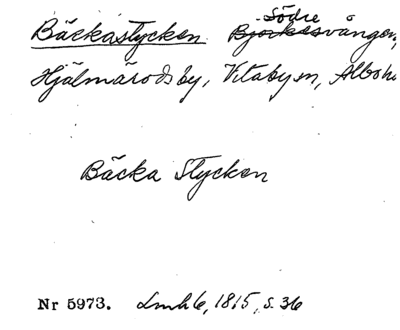 Bäckastycken Södra Björkesvången,
Hjälmärödsby, Vitaby sn, Albo h.
Bäcka Stycken
Nr 5973. Lmh6, 1815, s. 36